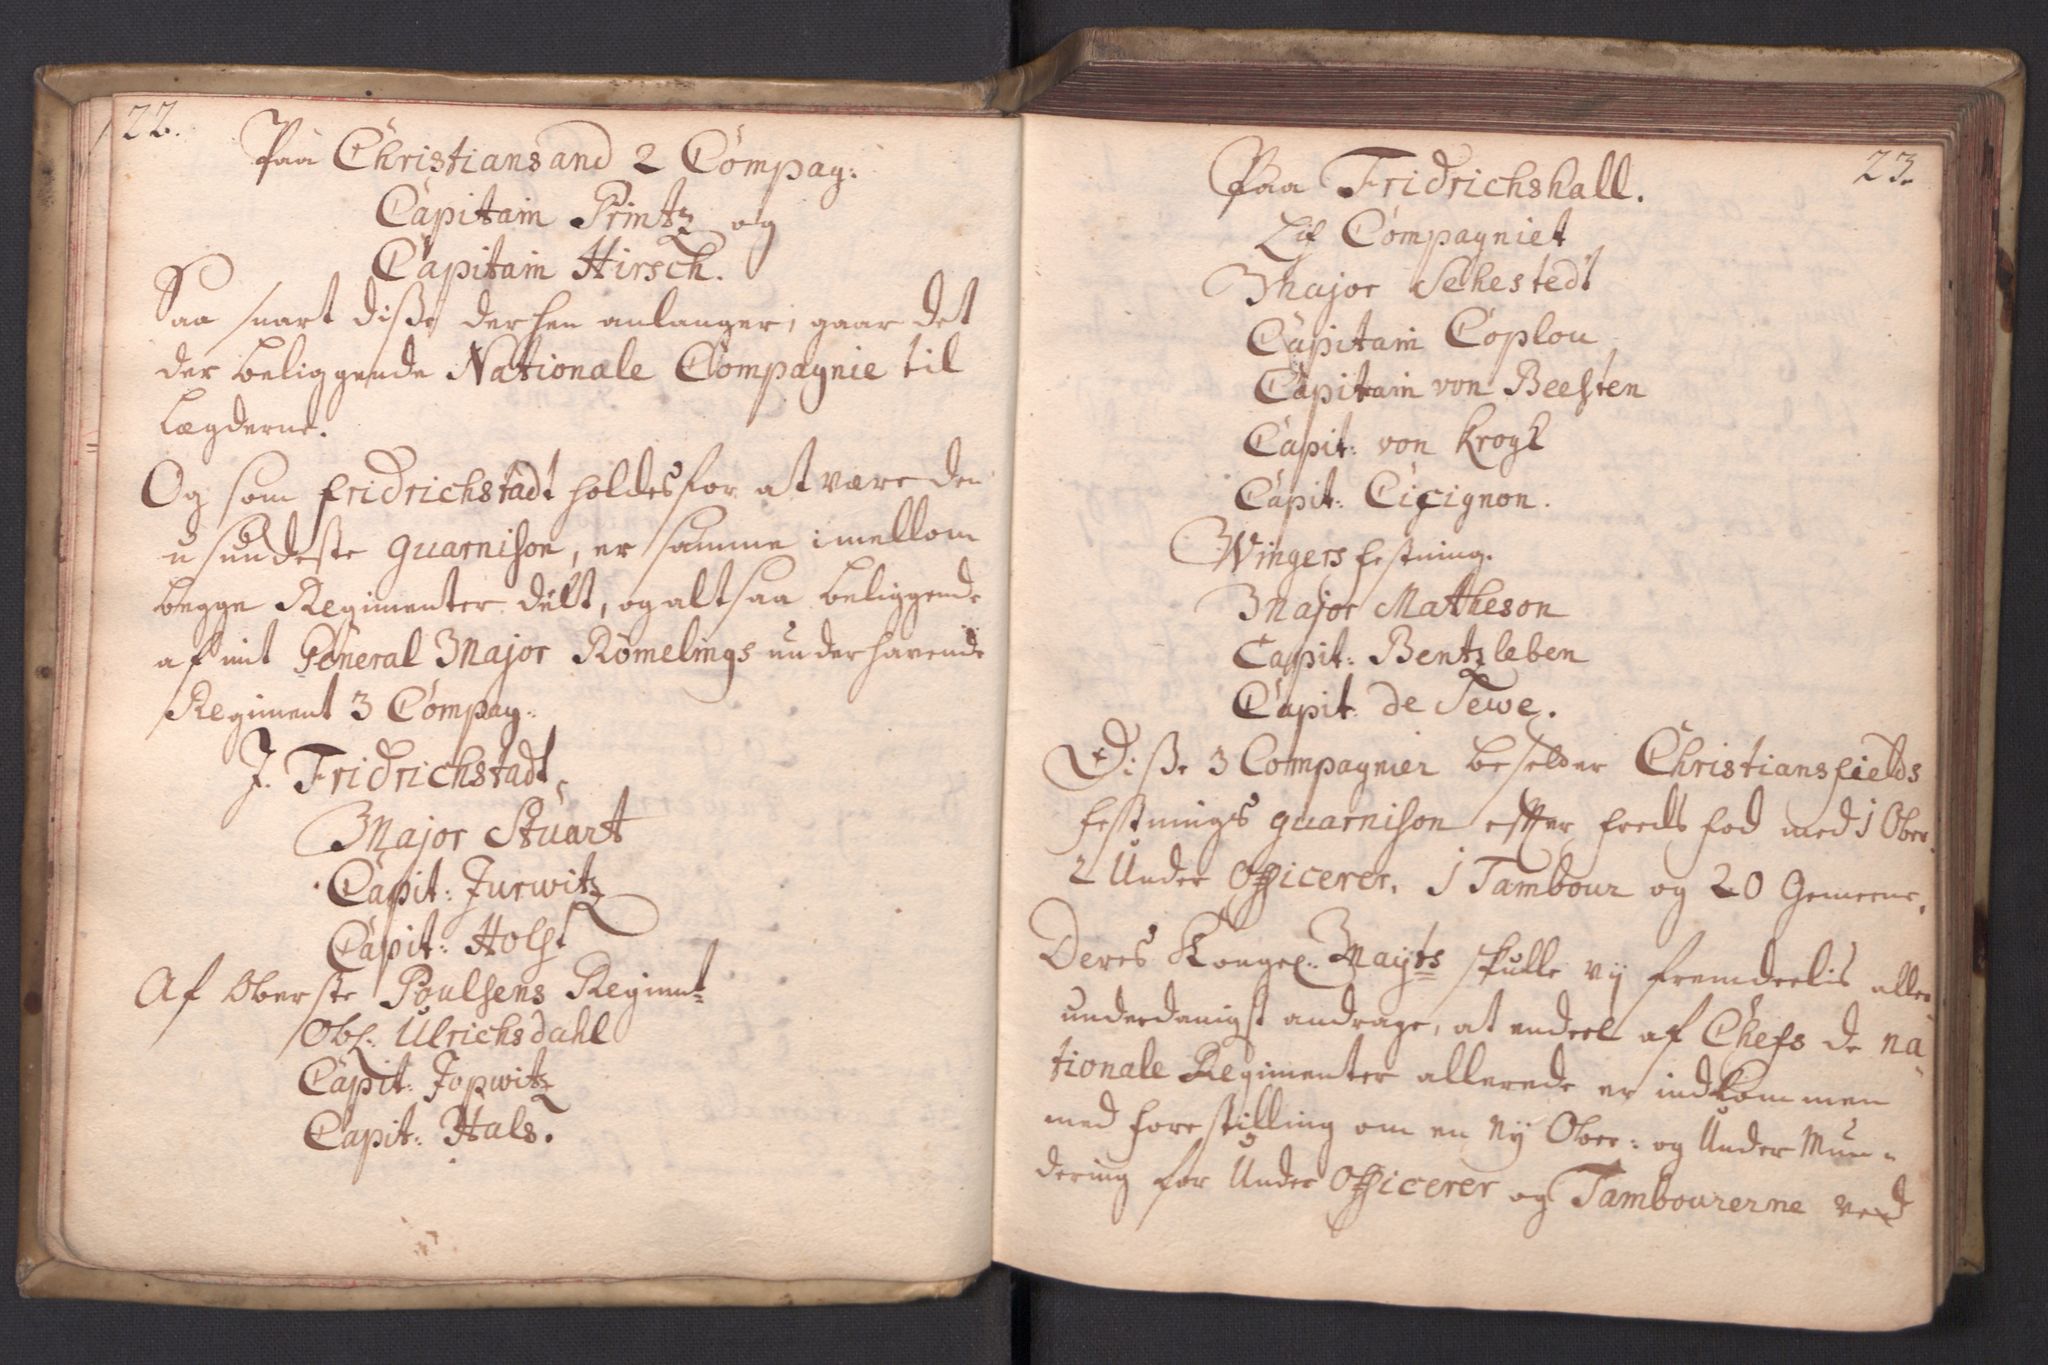 22.
Paa Christiansand 2 Compag:
Capitain Printz og
Capitain Hirsch.
Saa snart diße derhen anlanger, gaar det
der beliggende Nationale Compagnie til
Lægderne.
Og som fridrichstadt holdes for at være den
usundeste guarnison, er samme imellom
begge Regimenter deelt, og altsaa beliggende
af mit General Major Römelings underhavende
Regiment 3 Compag:
J. Fridrichstadt,
Major Stuart
Capit: Jurwitz
Capit: Holst
Af Oberste Poulsens Regimt:
Obl: Ulrichsdahl
Capit: Jopwitz
Capit: Hals.
23.
Paa Fridrichshall.
Lif Compagniet
Major Sehestedt
Capitain Coplou
Capitain von Beesten
Capit: von Krogh
Capit: Cicignon.
Wingers festning.
Major Matheson
Capit: Bentzleben
Capit: de Sewe.
Diße 3 Compagnier besetter Christiansfields
festnings guarnison efter freds fod med 1 Ober.
2 Under Officerer, 1 Tambour og 20 Gemeene,
Deres Kongel: Mayts skulle vij fremdeelis aller
underdanigst andrage, at endeel af Chefs de na
tionale Regimenter allerede er indkommen
med forestilling om en Nÿ Ober: og Under Mun-
dering for Under Officerer og Tambourerne ved